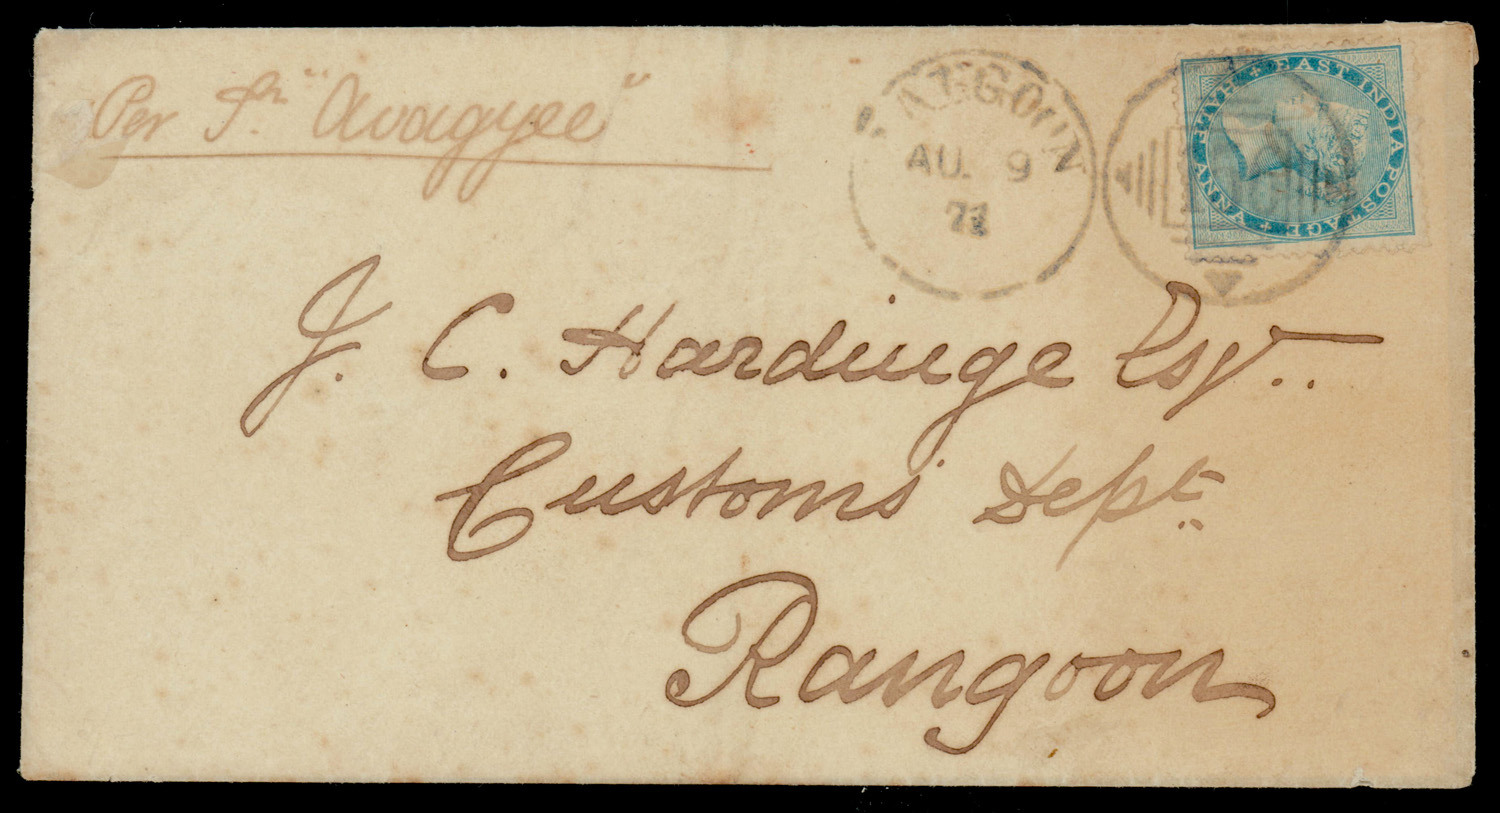 Per Sr. "Avagyee"
RANGOON
AU. 9
EAST INDIA POSTAGE
HALF ANNA
J. C. Hardinge Esqr..
Customs Dept.
Rangoon